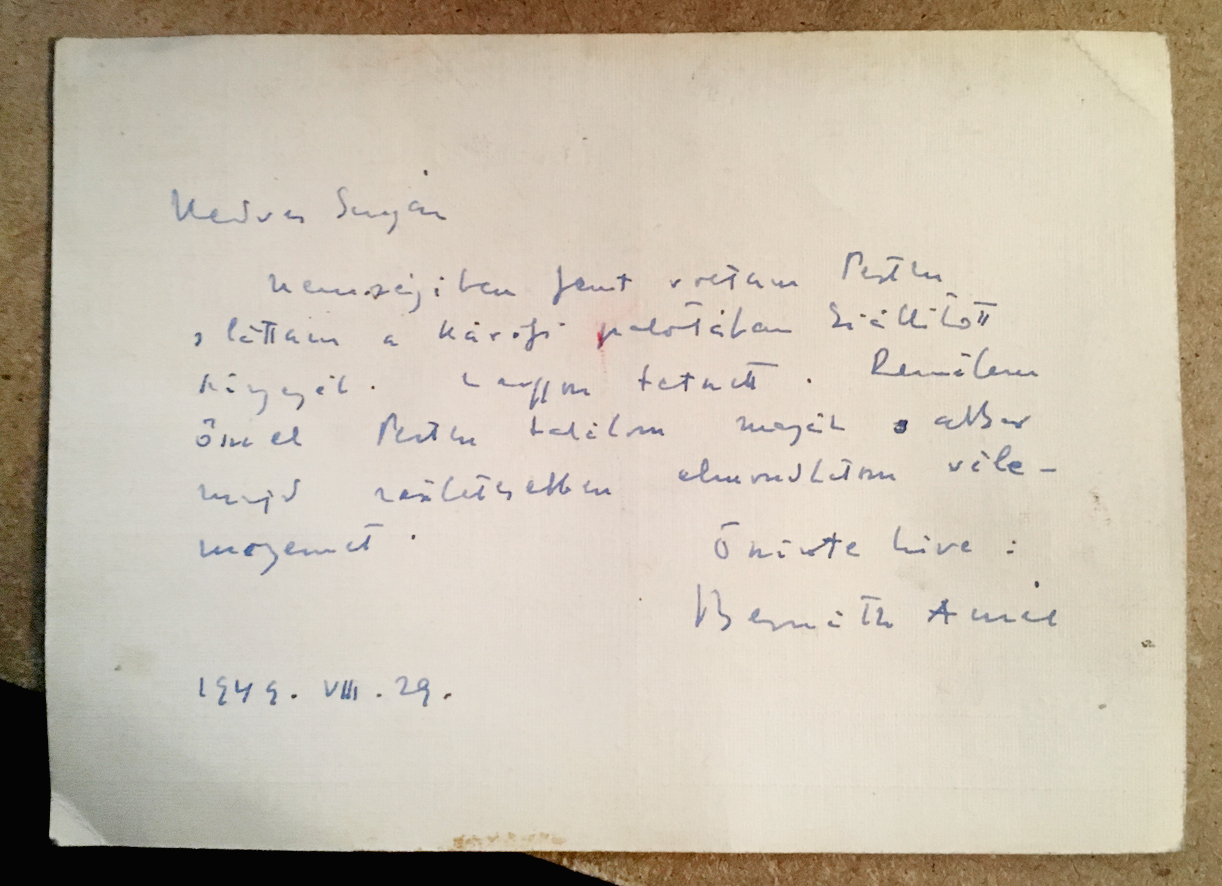 Kedves Surján
nemrégiben fent voltam Pesten
s láttam a Károlyi palotában kiállított
képeit. Nagyon tetszett. Remélem
ősszel Pesten találom magát s akkor
majd részletesebben elmondhatom véle-
ményemet.
Őszinte híve:
Bernáth Aurél
1949. VIII. 29.